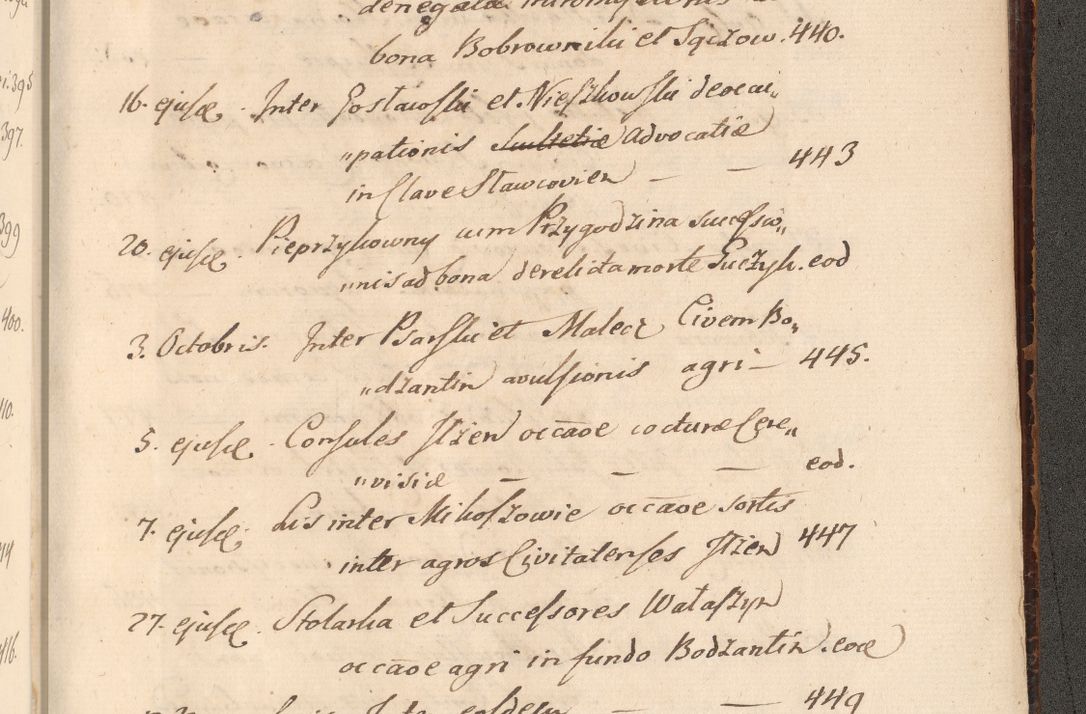 denegatæ intromissionis
bona Bobrowniki et Sączow. 440.
16. ejusd. Inter Gostawski et Nieszkowski deocu„
„pationis Scultetiæ Advocatiæ
in Clave Slawcovien — — 443
20. ejusd. Pieprzykowny cum Przygodzina succssio„
„nis ad bona derelicta morte Guczyk. eod
3. Octobris. Inter Psarski et Malecz Civem Bo„
„dzantin avulsionis agri — 445.
5. ejusd. Consules Ilzen occaõe cocturæ Cere„
„visiæ — — — eod.
7. ejusd. Lis inter Mikoszowie occaõe sortis
inter agros Civitatenses Ilzen 447
27. ejusd. Stolarka et Successores Wataszyn
occaõe agri in fundo Bodzantin. eod
449
i.395
397.
399
400.
410.
416.